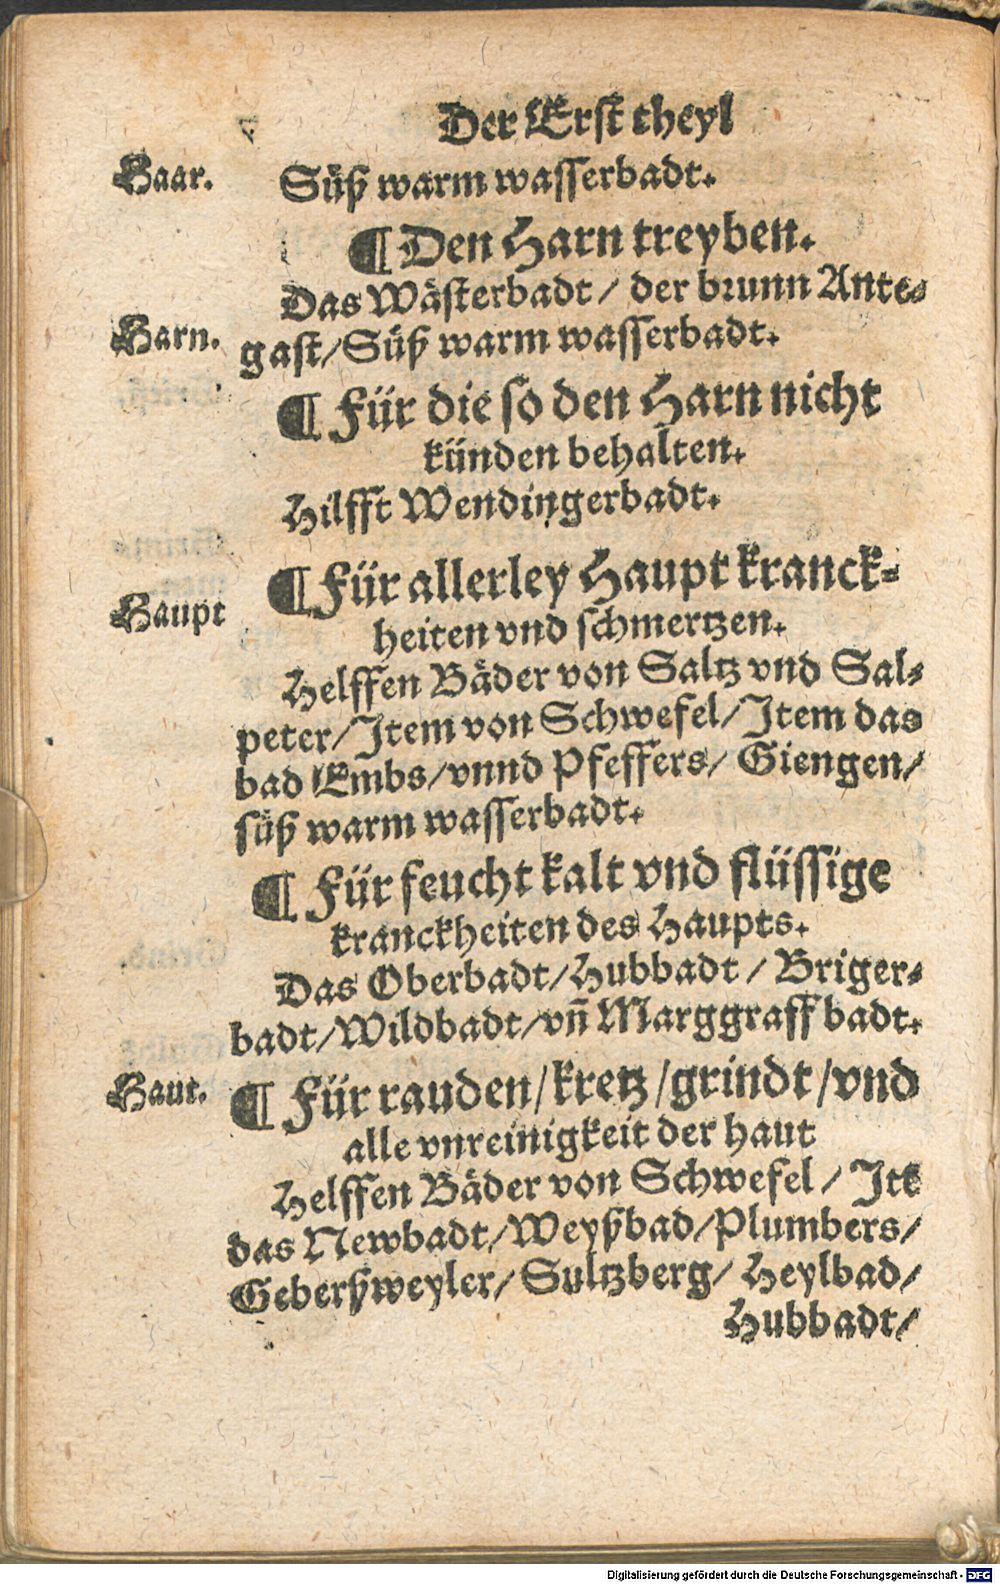 Der Erst theyl
Haar.
Süß warm wasserbadt.
¶ Den Harn treyben.
Das Wästerbadt / der brunn Ante-
Harn.
gast/Süß warm wasserbadt.
¶ Für die so den Harn nicht
künden behalten.
Hilfft Wendingerbadt.
¶ Für allerley Haupt kranck-
Haupt
heiten vnd schmertzen.
Helffen Bäder von Saltz vnd Sal-
peter/Item von Schwefel/Item das
bad Embs/vnnd Pfeffers/ Giengen/
süß warm wasserbadt.
¶ Für feucht kalt vnd flüssige
kranckheiten des Haupts.
Das Oberbadt/Hubbadt / Briger-
badt/Wildbadt/vn̄ Marggraff badt.
Haut.
¶ Für rauden/kretz/grindt/vnd
alle vnreinigkeit der haut
Helffen Bäder von Schwefel / Itē
das Newbadt/Weyßbad/Plumbers/
Geberßweyler/ Sultzberg/ Heylbad/
Hubbadt/
Digitalisierung gefördert durch die Deutsche Forschungsgemeinschaft - DFG